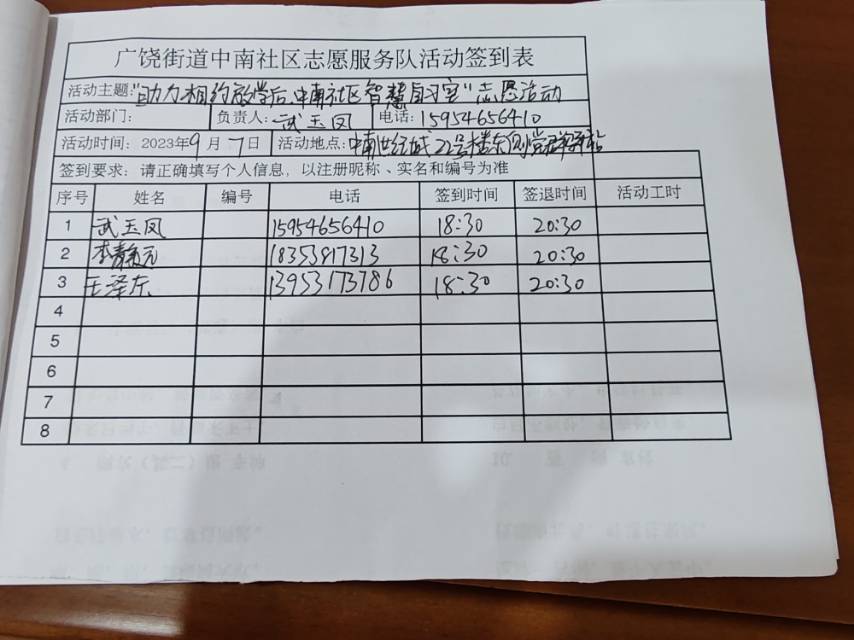 广饶街道中南社区志愿服务队活动签到表
活动主题:"助力相约放学后、中南社区智慧自习室"志愿活动
活动部门: 负责人: 武玉凤 电话: 15954656410
活动时间: 2023年9月7日 活动地点: 中南世纪城22号楼东侧党群驿站
签到要求: 请正确填写个人信息，以注册昵称、实名和编号为准
序号 姓名 编号 电话 签到时间 签退时间 活动工时
1 武玉凤 15954656410 18:30 20:30
2 李静 18353817313 18:30 20:30
3 王泽东 13953173786 18:30 20:30
4
5
6
7
8